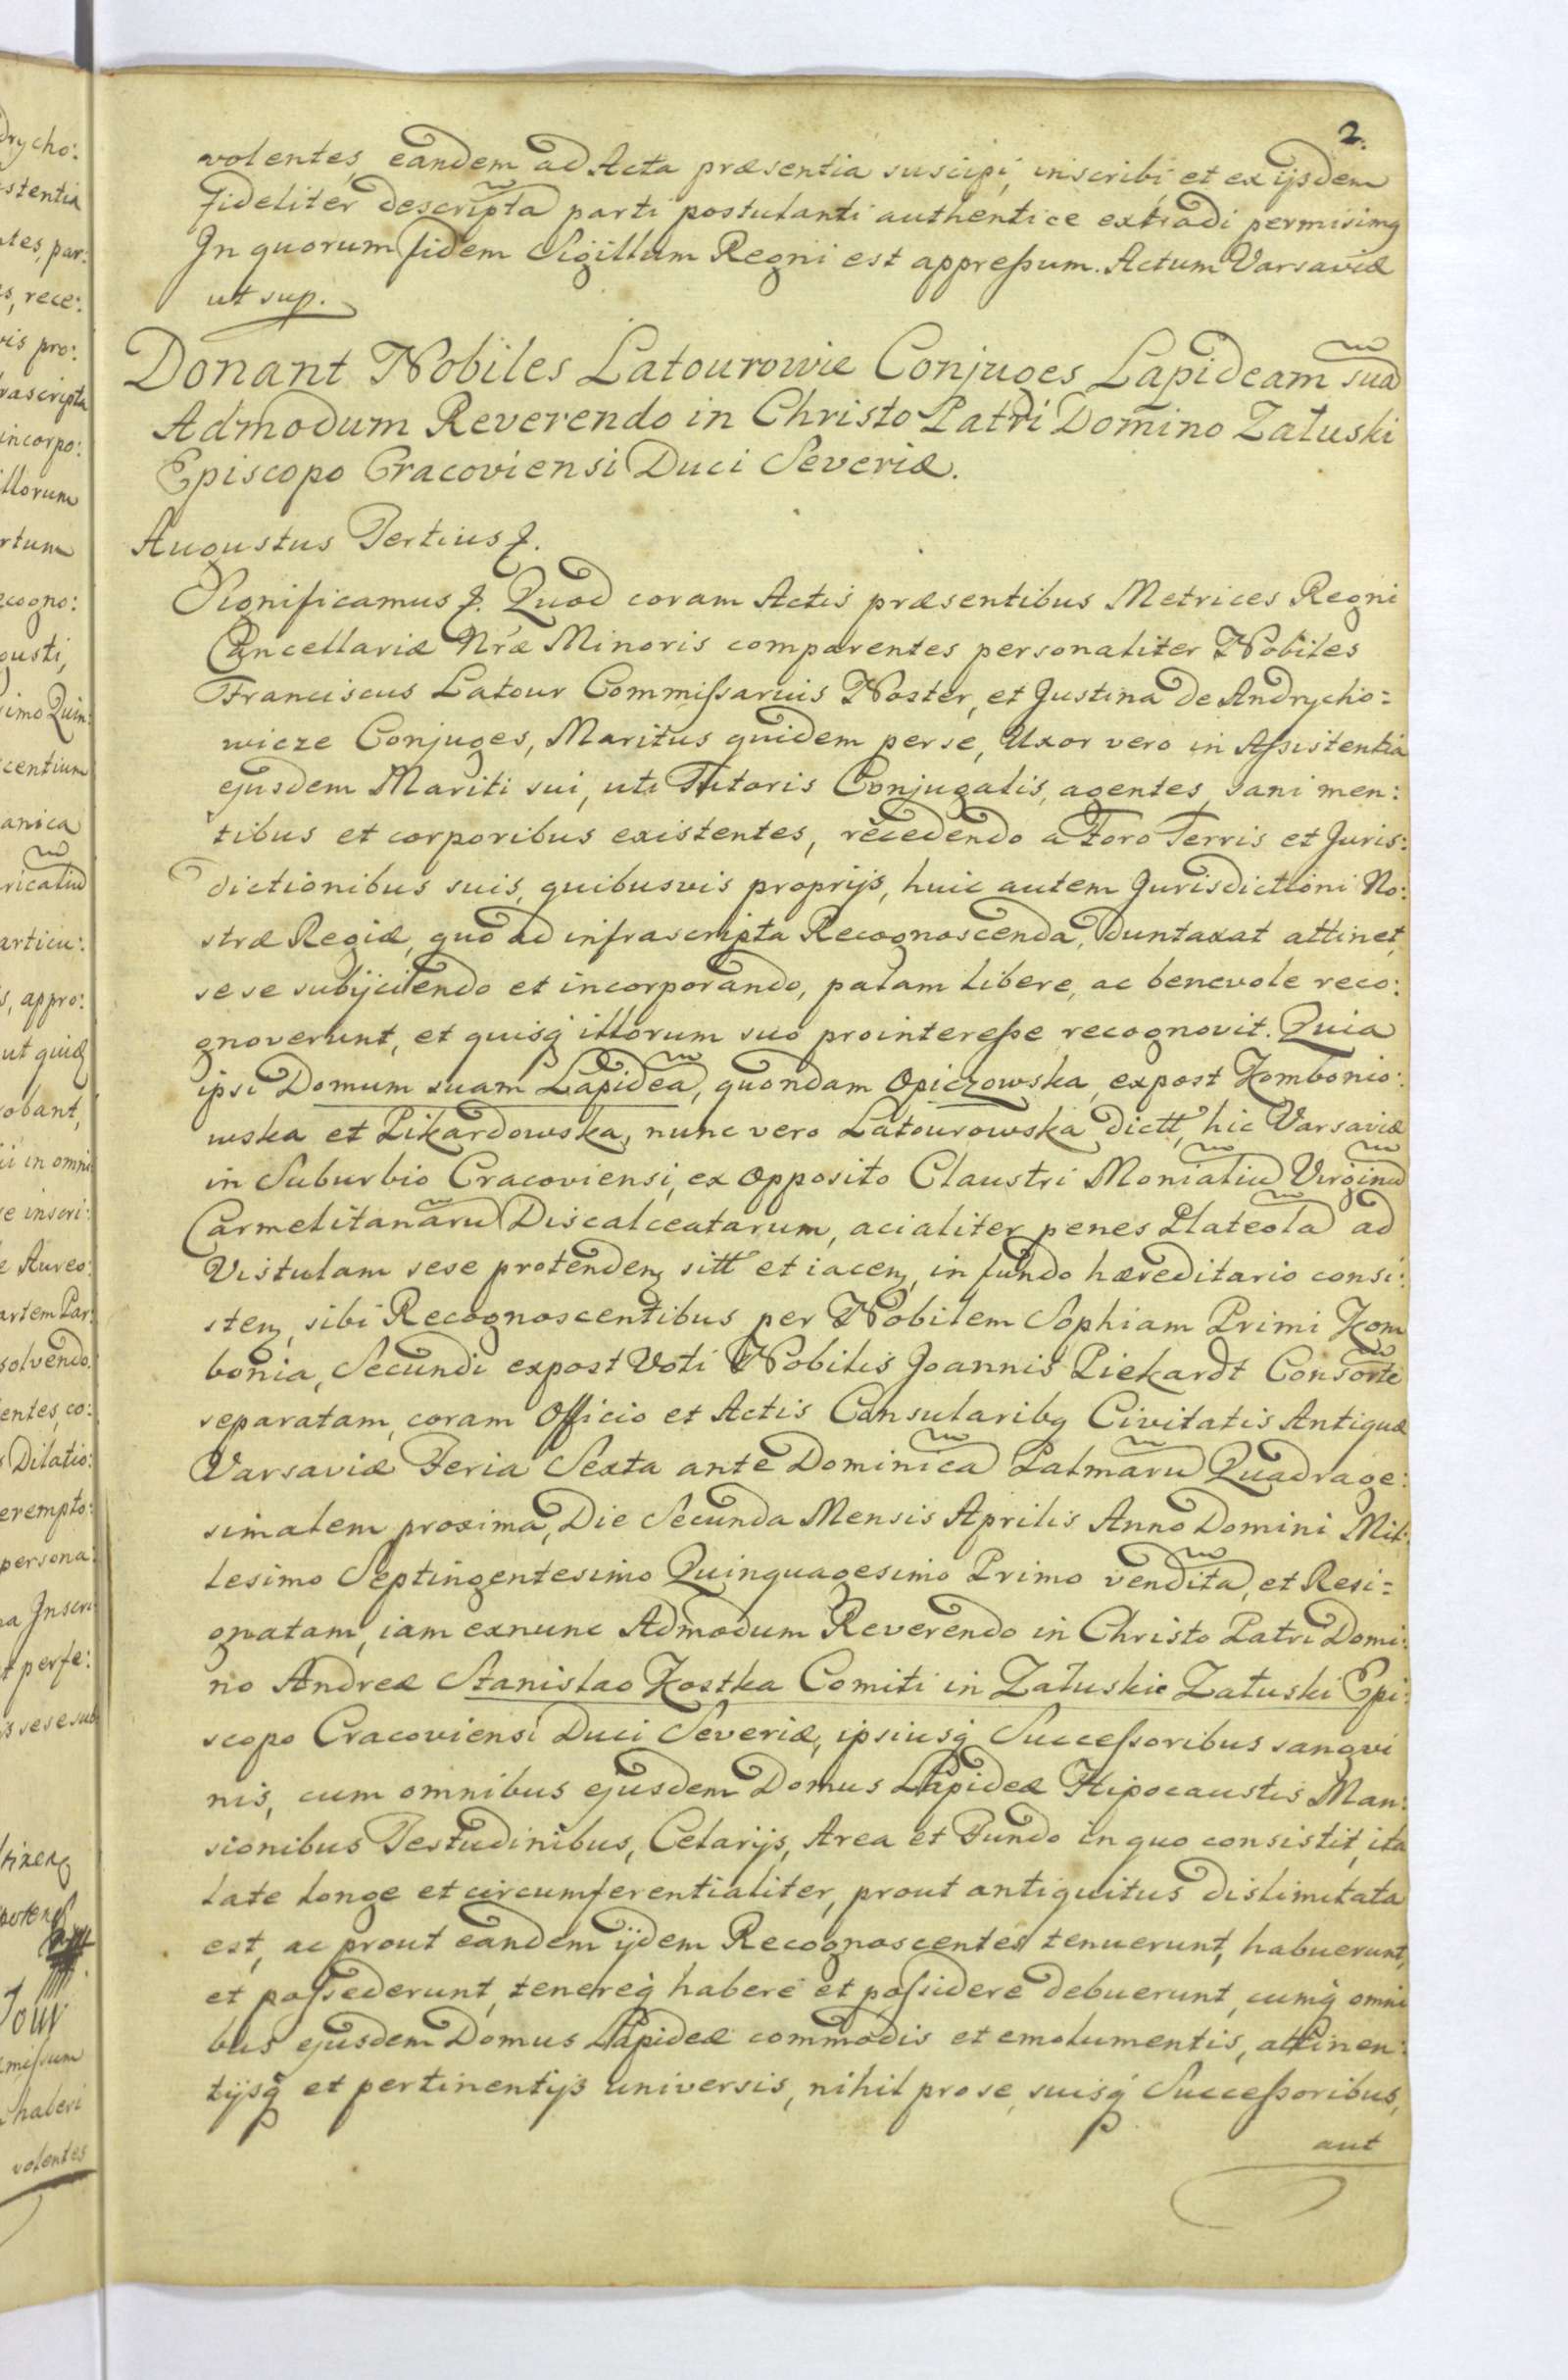 2.
volentes, eandem ad Acta præsentia suscipi, inscribi et ex ijsdem
fideliter descripta parti postulanti authentice extradi permisimq
In quorum fidem Sigillum Regni est appreſsum. Actum Varsaviæ
ut sup.
Donant Nobiles Latourowie Conjuges Lapideam suã
Admodum Reverendo in Christo Patri Domino Załuski
Episcopo Cracoviensi Duci Severiæ.
Augustus Tertius &.
Significamus &. Quod coram Actis præsentibus Metrices Regni
Cancellariæ Nræ Minoris comparentes personaliter Nobiles
Franciscus Latour Commiſsarius Noster, et Justina de Andrycho=
wicze Conjuges, Maritus quidem per se, Uxor vero in Aſsistentia
ejusdem Mariti sui, uti Tutoris Conjugalis, agentes, sani men:
tibus et corporibus existentes, recedendo a Foro Terris et Juris:
dictionibus suis, quibusvis proprijs, huic autem Jurisdictioni No:
stræ Regiæ, quo ad infrascripta Recognoscenda, duntaxat attinet,
se se subijciendo et incorporando, palam libere, ac benevole reco:
gnoverunt, et quisq illorum suo prointereſse recognovit. Quia
ipsi Domum suam Lapideã, quondam Opiczowska, expost Kombonio:
wska et Pikardowska, nunc vero Latourowska dictt, hic Varsaviæ
in Suburbio Cracoviensi, ex opposito Claustri Monialiũ Virginũ
Carmelitanarũ Discalceatarum, acialiter penes Plateolã ad
Vistulam sese protendeng sitt et iaceng, in fundo hæreditario consi:
steng, sibi Recognoscentibus per Nobilem Sophiam Primi Kom
bonia, Secundi expost Voti Nobilis Joannis Piekardt Consortẽ
separatam, coram Officio et Actis Consularibq Civitatis Antiquæ
Varsaviæ Feria Sexta ante Dominicã Palmarũ Quadrage:
simalem proxima, Die Secunda Mensis Aprilis Anno Domini Mil:
lesimo Septingentesimo Quinquagesimo Primo venditã, et Resi=
gnatam, iam exnunc Admodum Reverendo in Christo Patri Domi:
no Andreæ Stanislao Kostka Comiti in Załuskie Załuski Epi:
scopo Cracoviensi Duci Severiæ, ipsiusq Succeſsoribus sangvi
nis, cum omnibus ejusdem Domus Lapideæ Hipocaustis Man:
sionibus Testudinibus, Celarijs, Area et Fundo in quo consistit, ita
late longe et circumferentialiter, prout antiquitus dislimitata
est, ac prout eandem ijdem Recognoscentes tenuerunt, habuerunt,
et poſsederunt, tenereq habere et poſsidere debuerunt, cumq omni
bus ejusdem Domus Lapideæ commodis et emolumentis, attinen:
tijsq et pertinentijs universis, nihil pro se, suisq Succeſsoribus,
aut